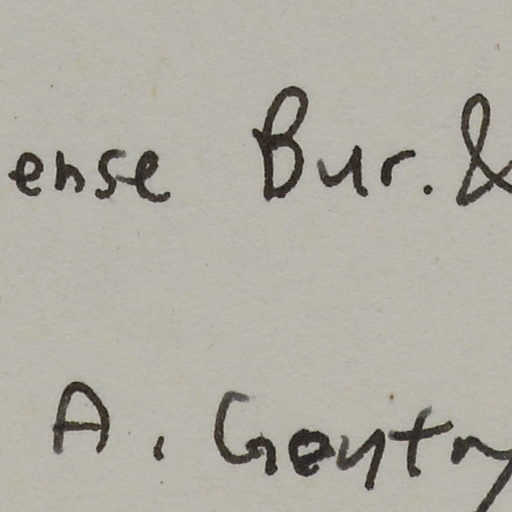 ense Bur. &
A. Gentry